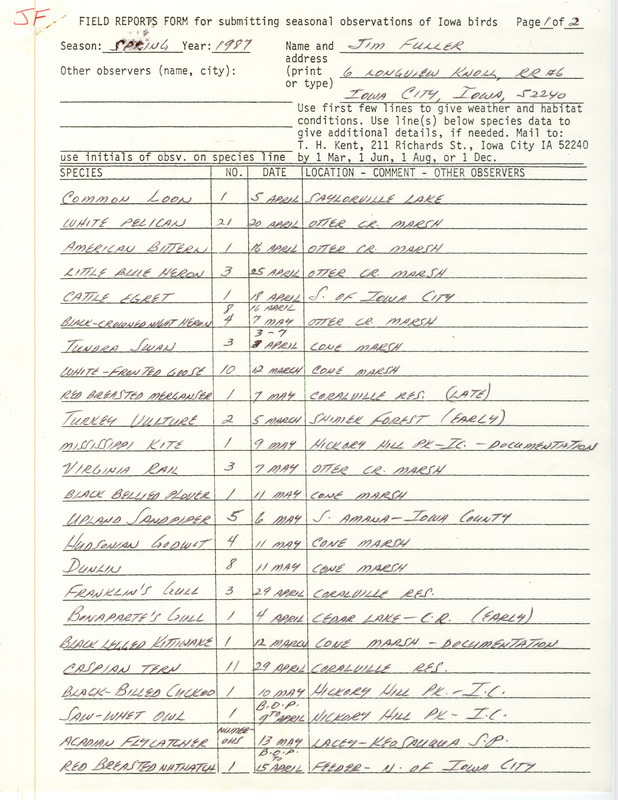 JF
FIELD REPORTS FORM for submitting seasonal observations of Iowa birds Page 1 of 2
Season: SPRING Year: 1987 Name and JIM FULLER
address
Other observers (name, city): (print 6 LONGVIEW KNOLL, RR #6
or type) IOWA CITY, IOWA, 52240
Use first few lines to give weather and habitat
conditions. Use line(s) below species data to
give additional details, if needed. Mail to:
T. H. Kent, 211 Richards St., Iowa City IA 52240
use initials of obsv. on species line by 1 Mar, 1 Jun, 1 Aug, or 1 Dec.
SPECIES NO. DATE LOCATION - COMMENT - OTHER OBSERVERS
COMMON LOON 1 5 APRIL SAYLORVILLE LAKE
WHITE PELICAN 21 20 APRIL OTTER CR. MARSH
AMERICAN BITTERN 1 16 APRIL OTTER CR. MARSH
LITTLE BLUE HERON 3 25 APRIL OTTER CR. MARSH
CATTLE EGRET 1 18 APRIL S. OF IOWA CITY
8 16 APRIL
BLACK-CROWNED NIGHT HERON 4 7 MAY OTTER CR. MARSH
3-7
TUNDRA SWAN 3 APRIL CONE MARSH
WHITE-FRONTED GOOSE 10 12 MARCH CONE MARSH
RED BREASTED MERGANSER 1 7 MAY CORALVILLE RES. (LATE)
TURKEY VULTURE 2 5 MARCH SHIMEK FOREST (EARLY)
MISSISSIPPI KITE 1 9 MAY HICKORY HILL PK-IC. - DOCUMENTATION
VIRGINIA RAIL 3 7 MAY OTTER CR. MARSH
BLACK BELLIED PLOVER 1 11 MAY CONE MARSH
UPLAND SANDPIPER 5 6 MAY S. AMANA - IOWA COUNTY
HUDSONIAN GODWIT 4 11 MAY CONE MARSH
DUNLIN 8 11 MAY CONE MARSH
FRANKLIN'S GULL 3 29 APRIL CORALVILLE RES.
BONAPARTE'S GULL 1 4 APRIL CEDAR LAKE - C.R. (EARLY)
BLACK LEGGED KITTIWAKE 1 12 MARCH CONE MARSH - DOCUMENTATION
CASPIAN TERN 11 29 APRIL CORALVILLE RES.
BLACK-BILLED CUCKOO 1 10 MAY HICKORY HILL PK. - I.C.
B.O.P.
SAW-WHET OWL 1 TO 9 APRIL HICKORY HILL PK - I.C.
NUMER-
ACADIAN FLYCATCHER OUS 13 MAY LACEY-KEOSAUQUA S.P.
B.O.P.
TO
RED BREASTED NUTHATCH 1 15 APRIL FEEDER - N. OF IOWA CITY